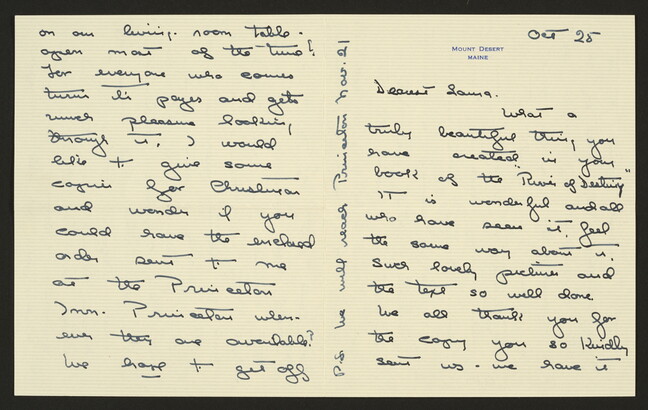 Oct 25
MOUNT DESERT
MAINE
Dearest Lama.
What a
truly beautiful thing you
have created in your
book of the "River of Destiny"
It is wonderful and all
who have seen it, feel
the same way about it.
Such lovely pictures and
the text so well done.
We all thank you for
the copy you so kindly
sent us - we have it
on our living-room table -
open most of the time!
for everyone who comes
turns its pages and gets
much pleasure looking
through it, I would
like to give some
copies for Christmas
and wonder if you
could have the enclosed
order sent to me
at the Princeton
Inn. Princeton when-
ever they are available?
We hope to get off
P.S. We will reach Princeton Nov. 21